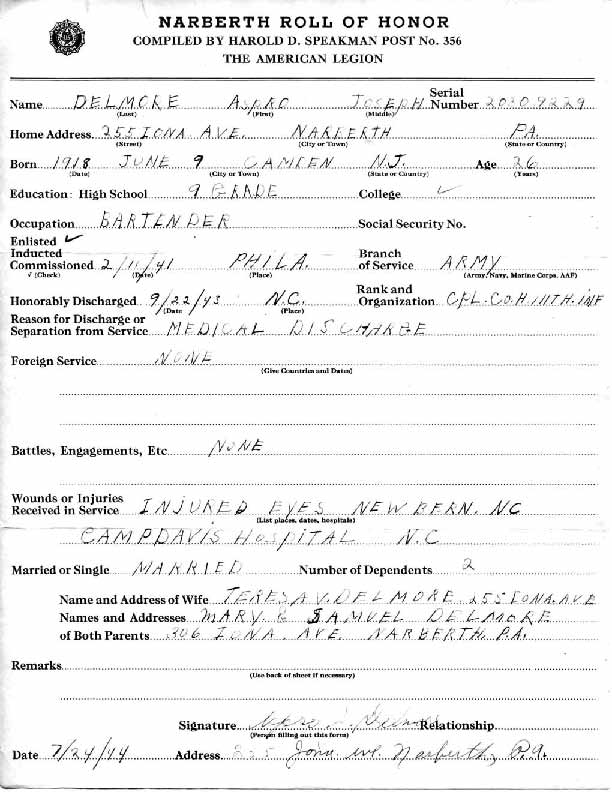 NARBERTH ROLL OF HONOR
COMPILED BY HAROLD D. SPEAKMAN POST No. 356
THE AMERICAN LEGION
Name DELMORE ASPRO JOSEPH Serial Number 20309229
(Last) (First) (Middle)
Home Address 255 IONA AVE. NARBERTH PA.
(Street) (City or Town) (State or Country)
Born 1918 JUNE 9 CAMDEN N.J. Age 26
(Date) (City or Town) (State or Country) (Years)
Education: High School 9 GRADE College ✓
Occupation BARTENDER Social Security No.
Enlisted ✓
Inducted Branch
Commissioned 2/11/41 PHILA. of Service ARMY
√ (Check) (Date) (Place) (Army, Navy, Marine Corps, AAF)
Honorably Discharged 9/22/43 N.C. Rank and Organization CPL. CO. H 111TH. INF
(Date (Place)
Reason for Discharge or
Separation from Service MEDICAL DISCHARGE
Foreign Service NONE
(Give Countries and Dates)
Battles, Engagements, Etc NONE
Wounds or Injuries
Received in Service INJURED EYES NEW BERN. NC
(List places, dates, hospitals)
CAMP DAVIS HOSPITAL N.C
Married or Single MARRIED Number of Dependents 2
Name and Address of Wife TERESA V. DELMORE 255 IONA. AVE
Names and Addresses MARY & SAMUEL DELMORE
of Both Parents 306 IONA. AVE. NARBERTH PA.
Remarks
(Use back of sheet if necessary)
Signature Relationship
(Person filling out this form)
Date 7/24/44 Address 255 Iona ave. Narberth, Pa.